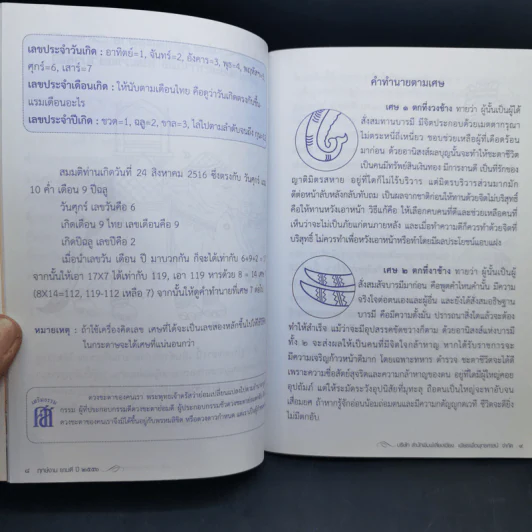 เลขประจำวันเกิด : อาทิตย์=1, จันทร์=2, อังคาร=3, พุธ=4, พฤหัสฯ=5
ศุกร์=6, เสาร์=7
เลขประจำเดือนเกิด : ให้นับตามเดือนไทย คือดูว่าวันเกิดตรงกับขึ้น
แรมเดือนอะไร
เลขประจำปีเกิด : ชวด=1, ฉลู=2, ขาล=3, ไล่ไปตามลำดับจนถึง กุน=12
สมมติท่านเกิดวันที่ 24 สิงหาคม 2516 ซึ่งตรงกับ วันศุกร์
10 ค่ำ เดือน 9 ปีฉลู
วันศุกร์ เลขวันคือ 6
เกิดเดือน 9 ไทย เลขเดือนคือ 9
เกิดปีฉลู เลขปีคือ 2
เมื่อนำเลขวัน เดือน ปี มาบวกกัน ก็จะได้เท่ากับ 6+9+2
จากนั้นให้เอา 17X7 ได้เท่ากับ 119, เอา 119 หารด้วย 8 = 14 เศษ
(8X14=112, 119-112 เหลือ 7) จากนั้นให้ดูคำทำนายที่เศษ 7 ต่อไป
หมายเหตุ : ถ้าใช้เครื่องคิดเลข เศษที่ได้จะเป็นเลขสองหลักขึ้นไปให้ใช้วิธี
ในกระดาษจะได้เศษที่แน่นอนกว่า
เสริมดวง
ดวงชะตาของคนเรา พระพุทธเจ้าตรัสว่าย่อมเปลี่ยนแปลงไปตาม
กรรม ผู้ที่ประกอบกรรมดีดวงชะตาย่อมดี ผู้ประกอบกรรมชั่วดวงชะตา
ดวงชะตาของคนเราจึงมิได้ขึ้นอยู่กับพรหมลิขิต หรือดวงดาวกำหนด แต่
๘ ฤกษ์งาม ยามดี ปี ๒๕๕๒
คำทำนายตามเศษ
เศษ ๑ ตกที่งวงช้าง ทายว่า ผู้นั้นเป็นผู้ได้
สั่งสมทานบารมี มีจิตประกอบด้วยเมตตากรุณา
ไม่ตระหนี่ถี่เหนียว ชอบช่วยเหลือผู้ที่เดือดร้อน
มาก่อน ด้วยอานิสงส์ผลบุญนั้นจะทำให้ชะตาชีวิต
เป็นคนมีทรัพย์สินเงินทอง มีการงานดี เป็นที่รักของ
ญาติมิตรสหาย อยู่ที่ใดก็ไม่ไร้บริวาร แต่มิตรบริวารส่วนมากมัก
ดีต่อหน้าลับหลังกลับทับถม เป็นผลจากชาติก่อนให้ทานด้วยจิตไม่บริสุทธิ์
คือให้ทานหวังเอาหน้า วิธีแก้คือ ให้เลือกคบคนที่ดีและช่วยเหลือคนที่
เห็นว่าจะไม่เป็นภัยแก่ตนภายหลัง และเมื่อทำความดีก็ควรทำด้วยจิตที่
บริสุทธิ์ ไม่ควรทำเพื่อหวังเอาหน้าหรือทำโดยมีผลประโยชน์แอบแฝง
เศษ ๒ ตกที่งาช้าง ทายว่า ผู้นั้นเป็นผู้
สั่งสมสัจบารมีมาก่อน คือพูดคำไหนคำนั้น มีความ
จริงใจต่อตนเองและผู้อื่น และยังได้สั่งสมอธิษฐาน
บารมี คือมีความตั้งมั่น ปรารถนาสิ่งใดแล้วจะต้อง
ทำให้สำเร็จ แม้ว่าจะมีอุปสรรคขัดขวางก็ตาม ด้วยอานิสงส์แห่งบารมี
ทั้ง ๒ จะส่งผลให้เป็นคนที่มีจิตใจกล้าหาญ หากได้รับราชการจะ
มีความเจริญก้าวหน้าดีมาก โดยเฉพาะทหาร ตำรวจ ชะตาชีวิตจะได้ดี
เพราะความซื่อสัตย์สุจริตและความกล้าหาญของตน อยู่ที่ใดมีผู้ใหญ่คอย
อุปถัมภ์ แต่ให้ระมัดระวังอุปนิสัยที่มุทะลุ ถือตนเป็นใหญ่จะพาอับจน
เสื่อมยศ ถ้าหากรู้จักอ่อนน้อมถ่อมตนและมีความกตัญญูกตเวที ชีวิตจะดียิ่ง
ไม่มีตกอับ